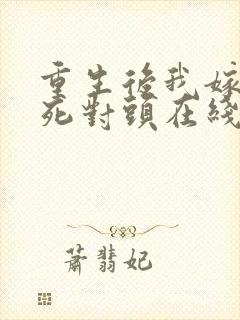 重生後我嫁
死對頭在綫
蕭翡妃